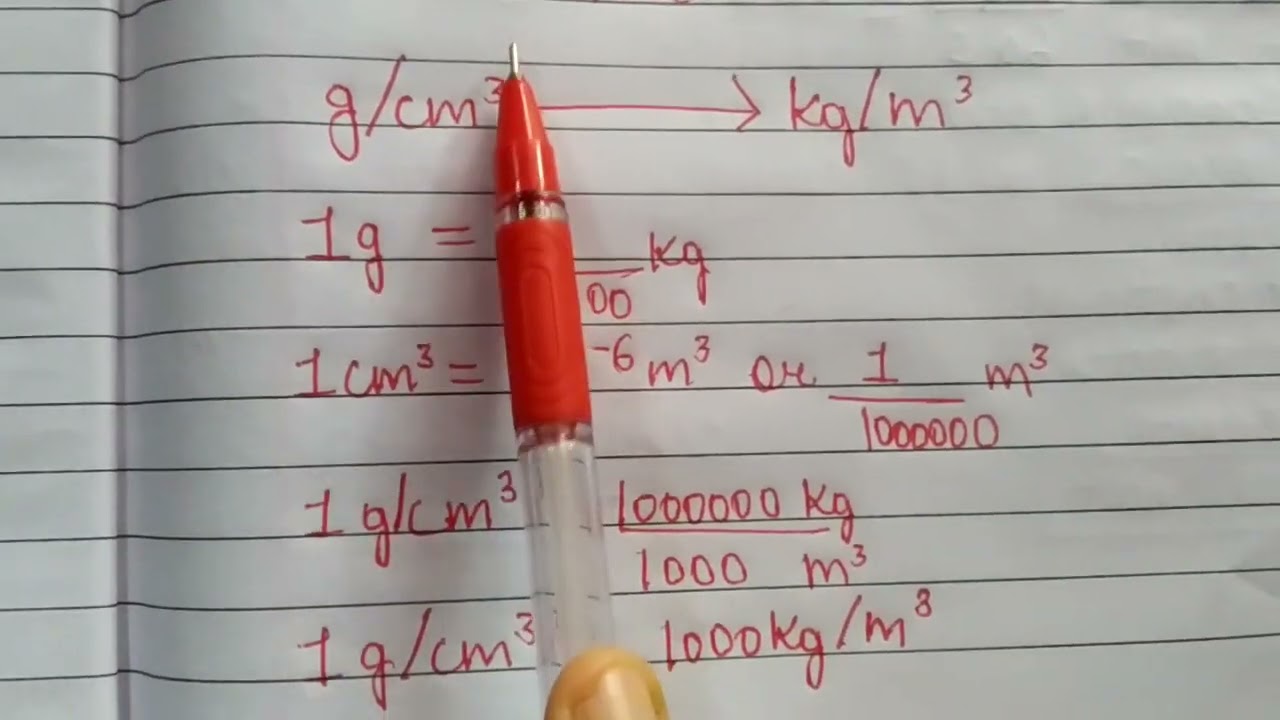 g/cm³ → kg/m³
1g = 00 kg
1cm³ = -6 m³ or 1/1000000 m³
1 g/cm³ 1000000 kg/1000 m³
1 g/cm³ 1000kg/m³